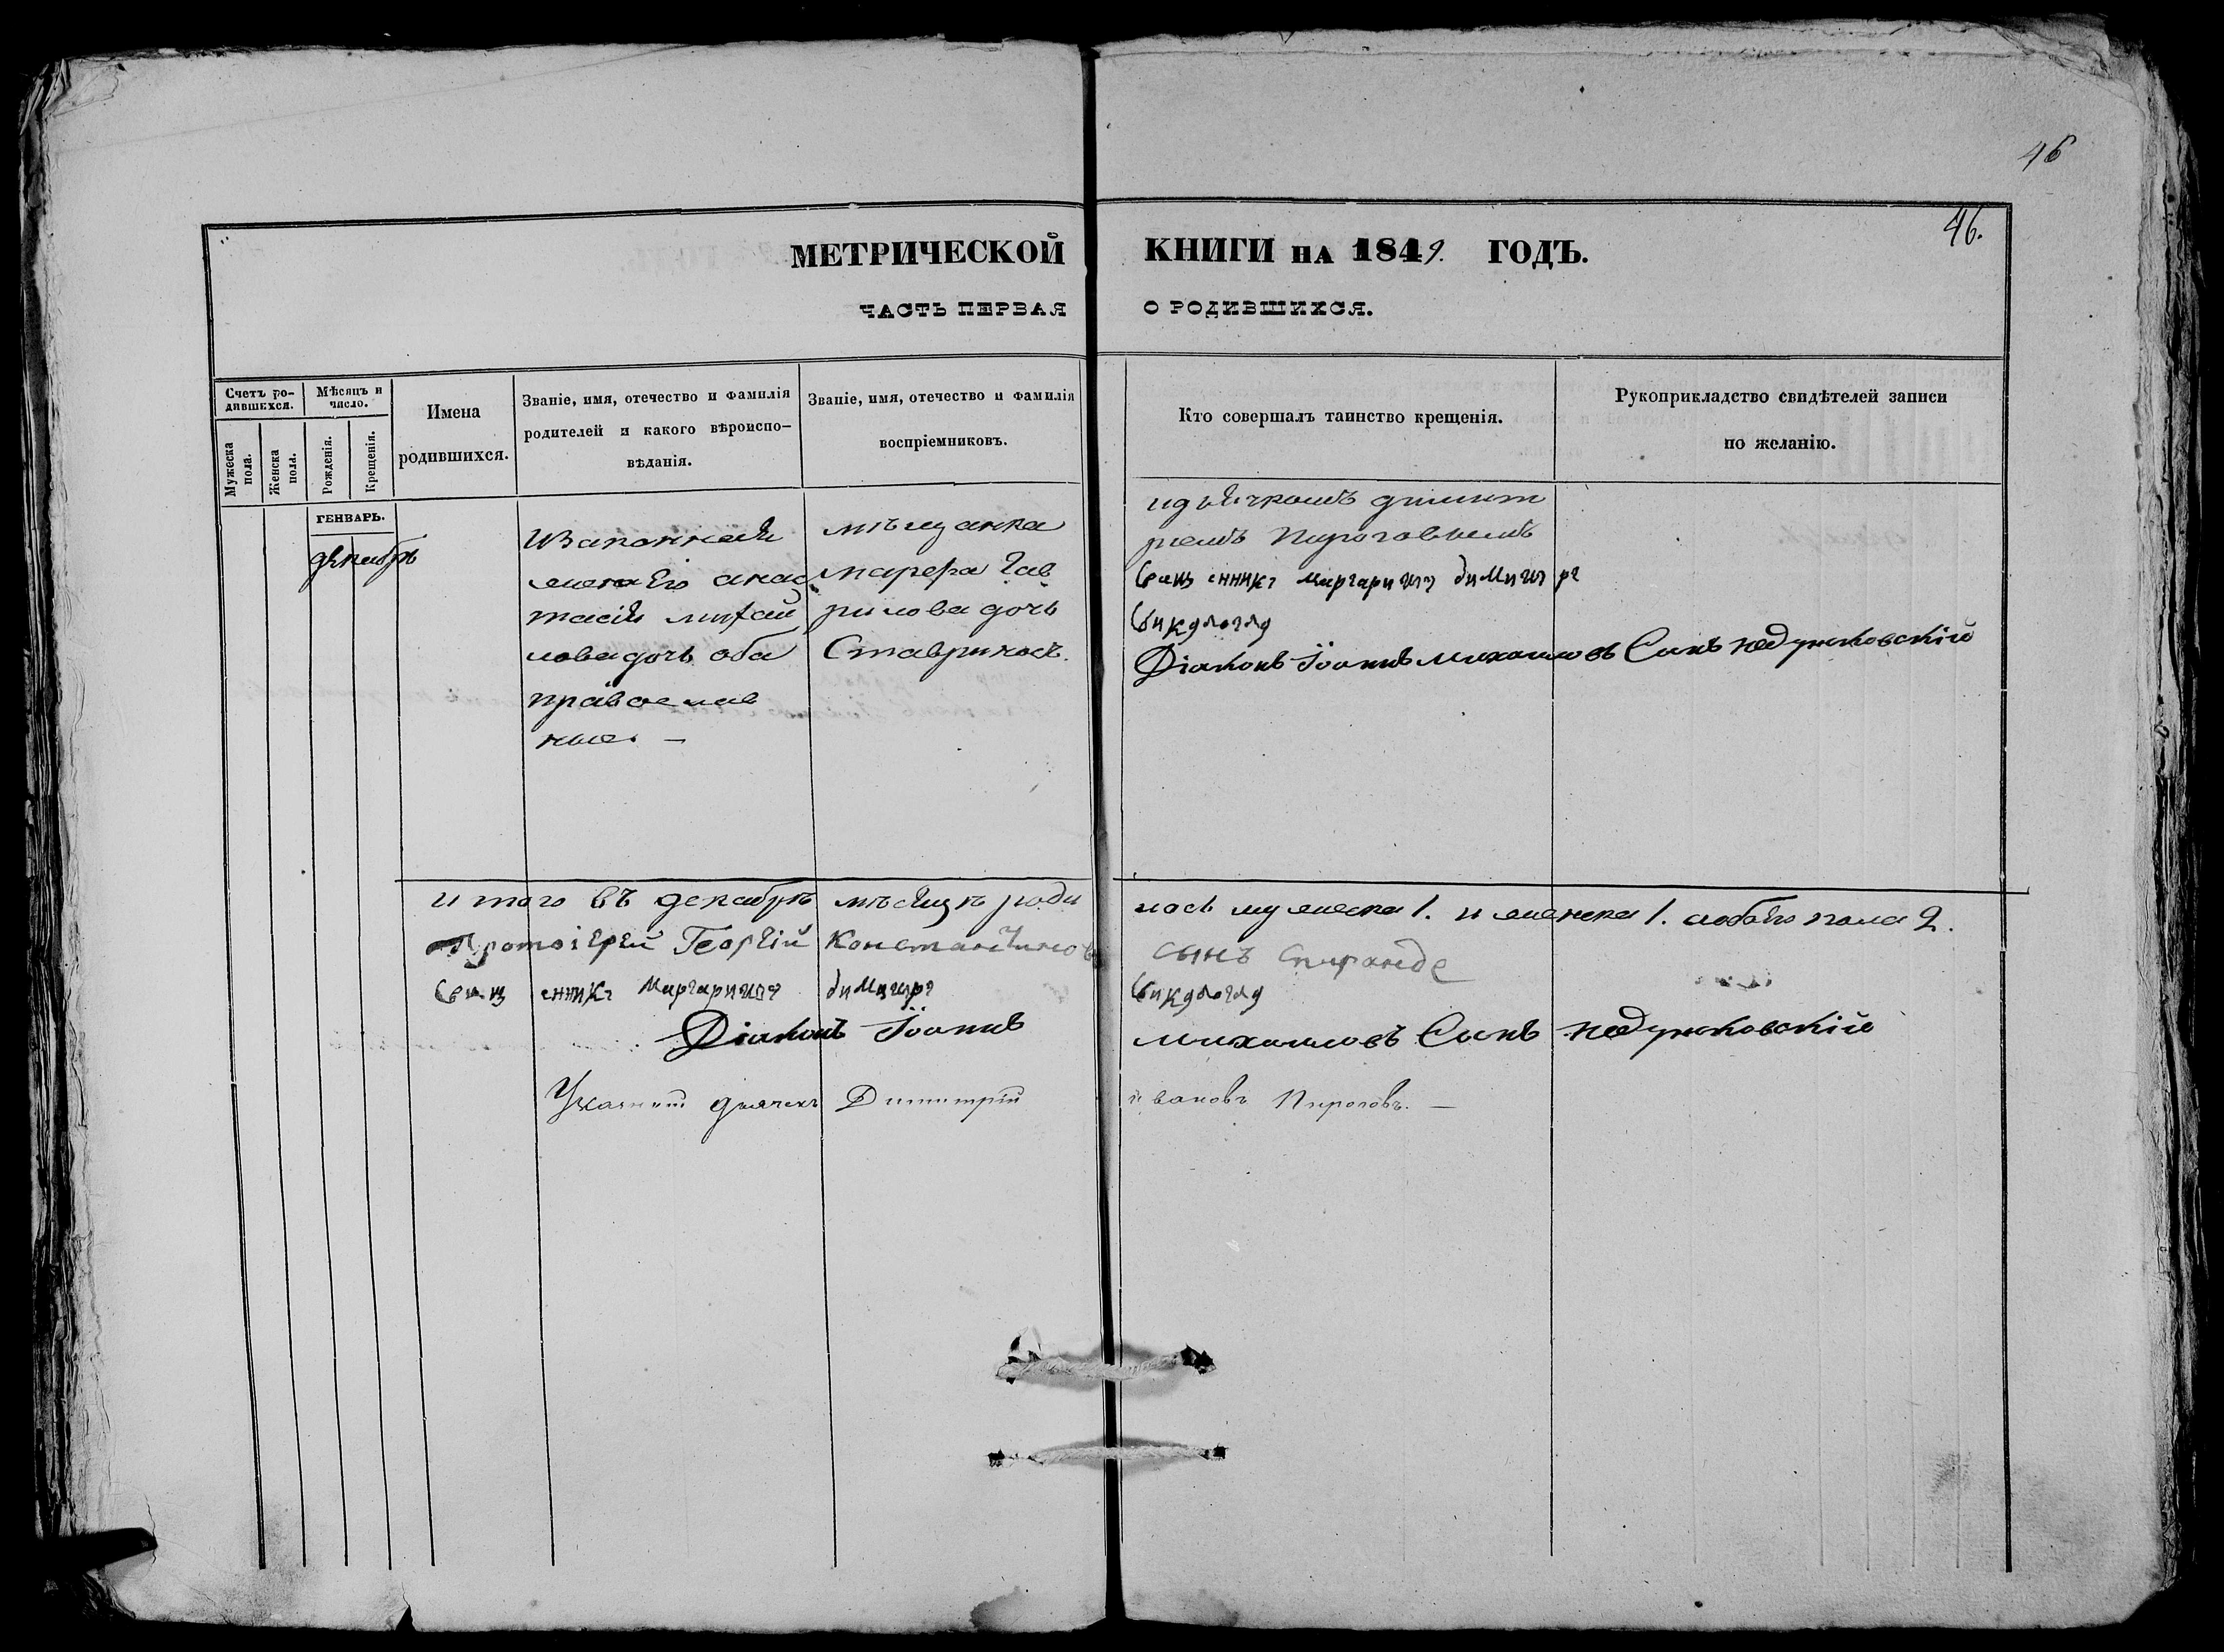 46
46.
МЕТРИЧЕСКОЙ КНИГИ НА 1849. ГОДЪ.
ЧАСТЬ ПЕРВАЯ О РОДИВШИХСЯ.
Счетъ ро-
дившихся.
Мужеска
пола.
Женска
пола.
Мѣсяцъ и
число.
Рожденія.
Крещенія.
Имена
родившихся.
Званіе, имя, отечество и фамилія
родителей и какого вѣроиспо-
вѣданія.
Званіе, имя, отечество и фамилія
воспріемниковъ.
Кто совершалъ таинство крещенія.
Рукоприкладство свидѣтелей записи
по желанію.
ГЕНВАРЬ.
декабрь
Изаконная
жена Его анас
тасія михай
ловадочь оба
православ
ные. —
мѣщанка
Гав
рилова дочь
Ставриновъ.
идьячкомъ димит
ріемъ Пироговымъ
Священникъ Маргаритъ димитрі
Діаконъ Іоаннъ михаиловъ Сынъ
итого въ декабрѣ мѣсяцѣ роди лось мужеска 1. и женска 1. обоего пола 2.
Протоіерей Георгій Константиновъ сынъ Спиранде
Священникъ Маргаритъ димитрі
Діаконъ Іоаннъ михаиловъ Сынъ
Указный дьячекъ Димитрій ивановъ Пироговъ. —